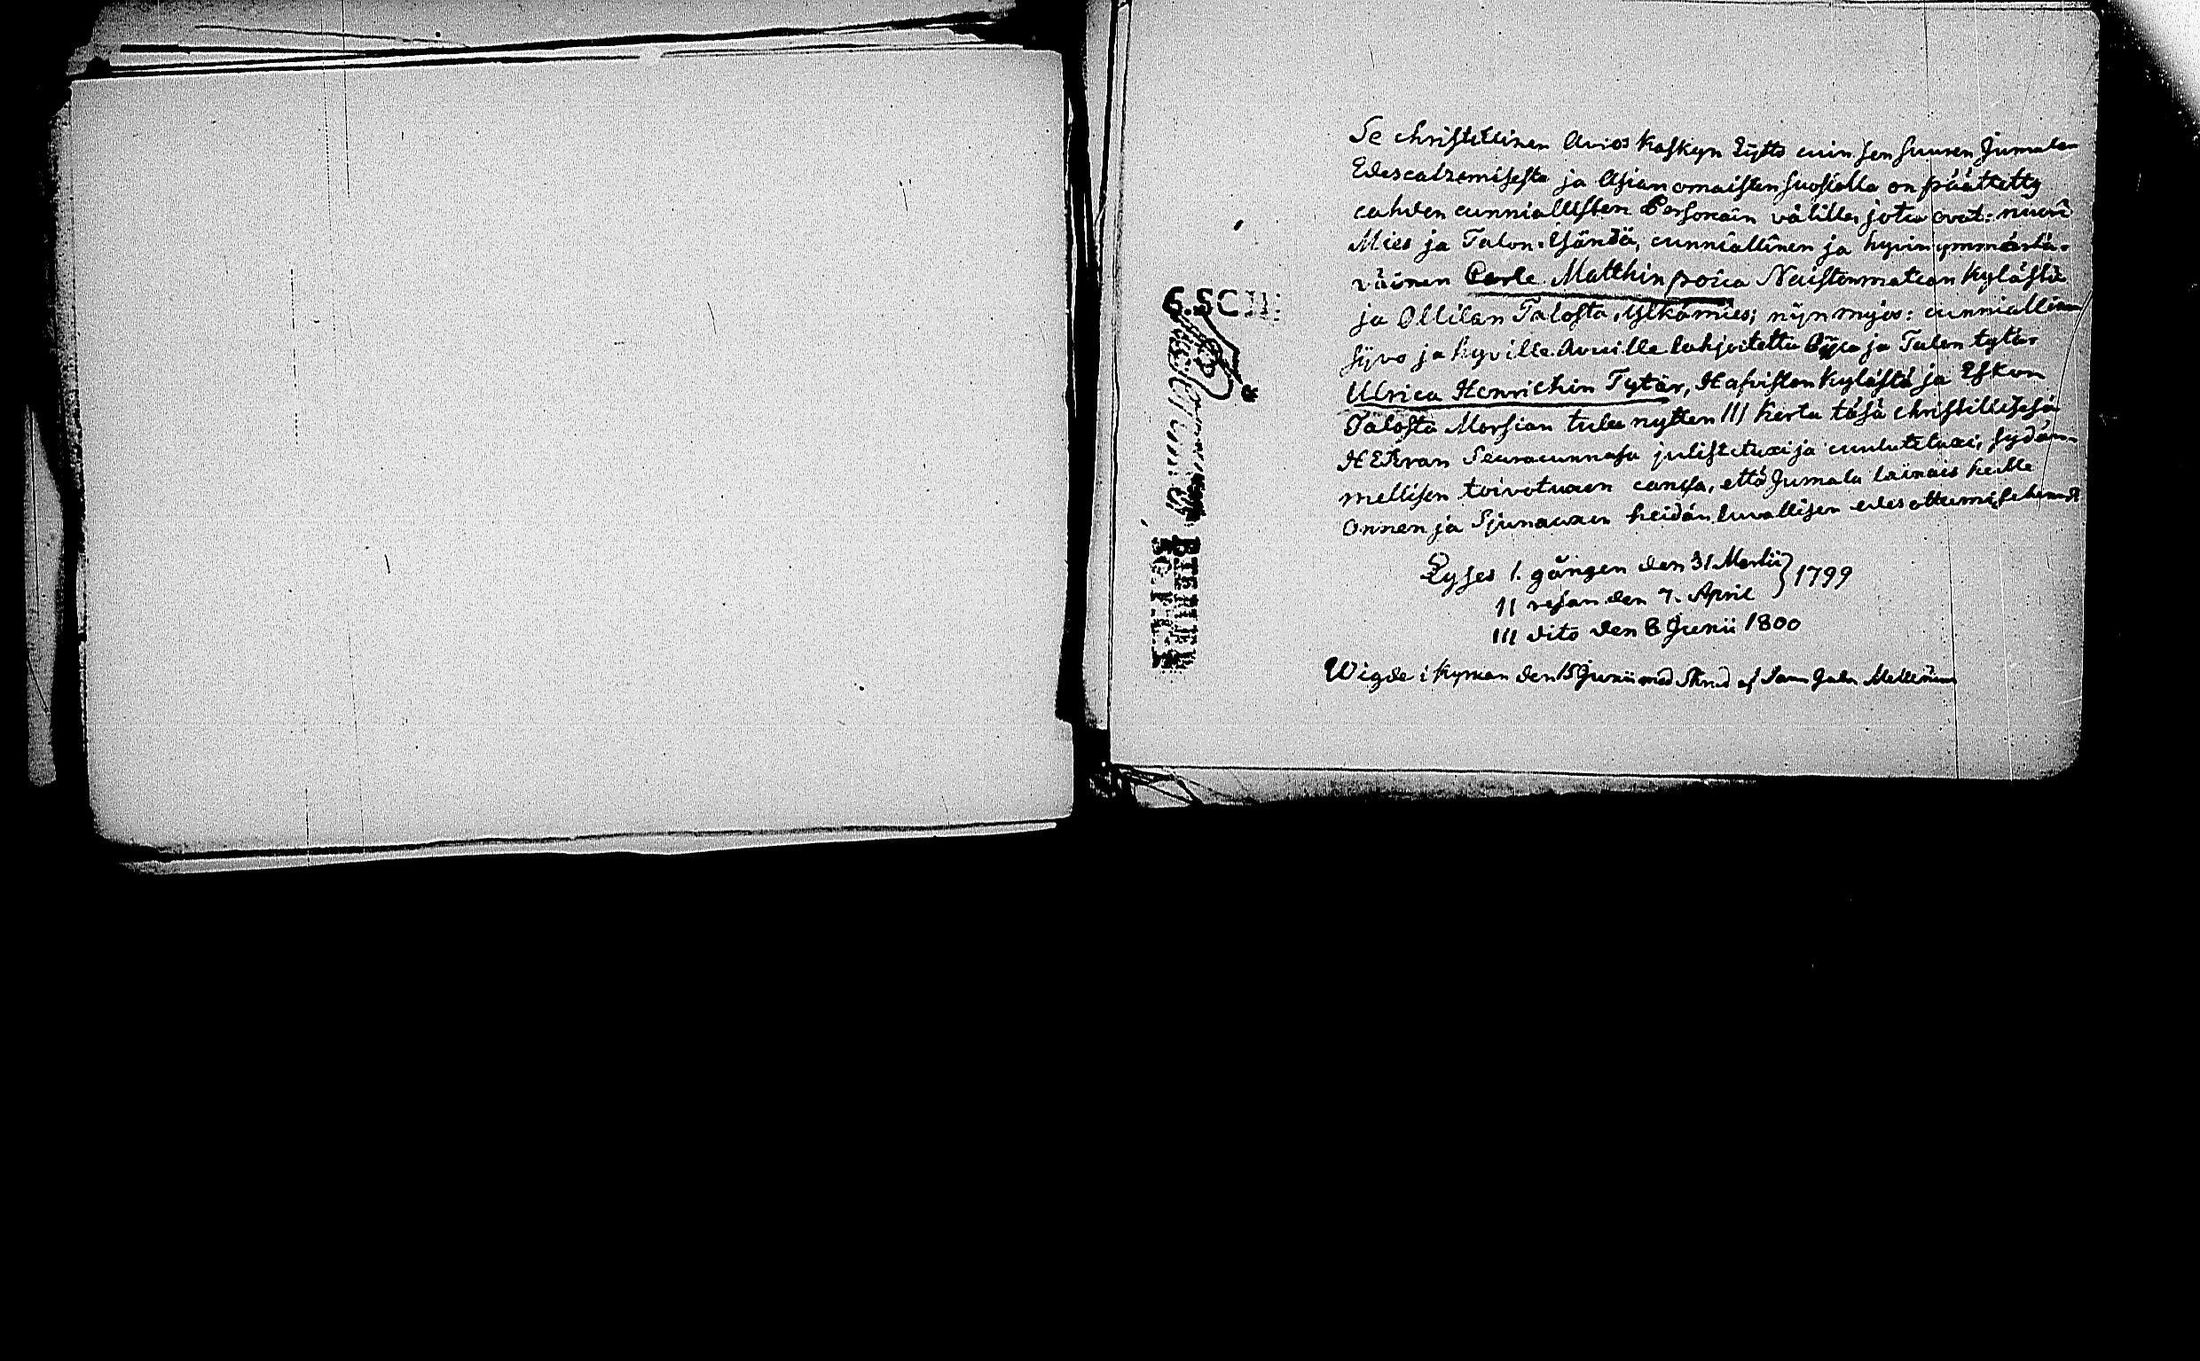 Se christillinen Avios kaskyn Lijtto cuin sen suuren Jumalan
Edescatzomisesta ja Asianomaisten suosiolla on päätetty
cahden cunniallisten Personain välille, jotca ovat: nuori
Mies ja Talon-Isändä, cunniallinen ja hyvin ymmärtä-
väinen Carle Matthin poica Naistenmatcan kylästä
ja Ollilan Talosta, Ylkämies; nijn myös: cunniallinen
sijvo ja hyville Avuille lahjoitettu Pijca ja Talon tytär
Ulrica Henrichin Tytär, Hafvisten kylästä ja Eskon
Talosta Morsian tulee nytten III kerta täsä christillisesä
HERran Seuracunnasa julistetuxi ja cuulutetuxi, sydäm-
mellisen toivotuxen cansa, että Jumala lainais heille
Onnen ja Sjunauxen heidän luvallisen edesottamisehensa
Lyses 1. gången den 31 Martii } 1799
II resan den 7. April
III dito den 8 Junii 1800
Wigde i kyrkan den 15 Junii med Skrud af
G.SCH